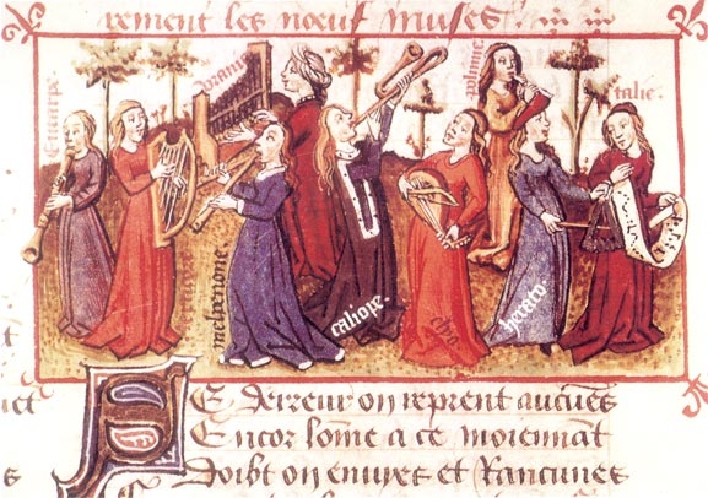 rement les nœuf muses.
Euterpe.
uranie
polimie
talie.
melpenone.
caliope.
clio
herato.
De derreur on reprent aucuēs
Encor sōme a ce moiennāt
Doibt on enuyes et Rancunes